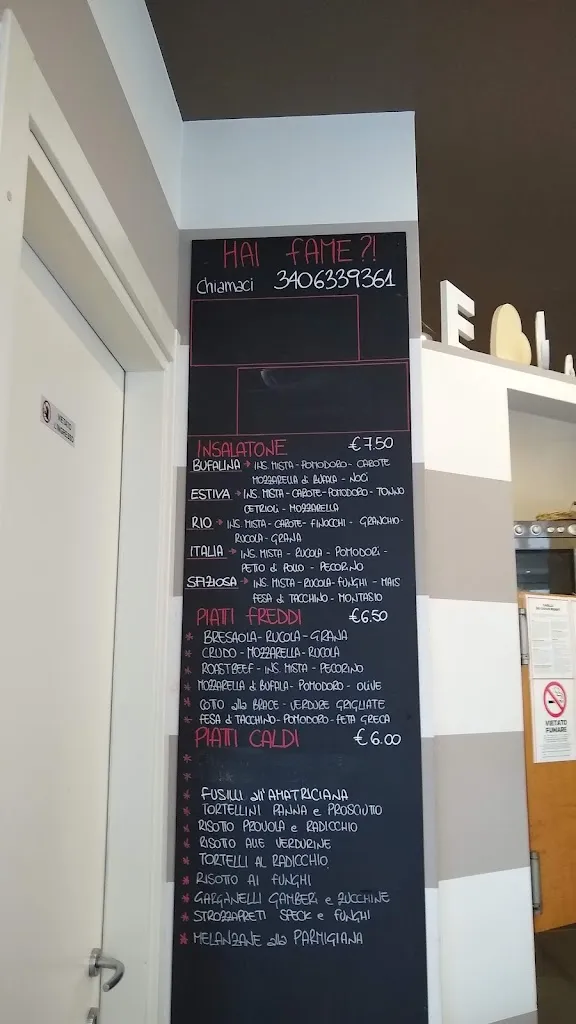 HAI FAME?!
Chiamaci 3406339361
INSALATONE €7.50
BUFALINA → INS. MISTA - POMODORO - CAROTE
MOZZARELLA di BUFALA - NOCI
ESTIVA → INS. MISTA - CAROTE - POMODORO - TONNO
CETRIOLI - MOZZARELLA
RIO → INS. MISTA - CAROTE - FINOCCHI - GRANCHIO -
RUCOLA - GRANA
ITALIA → INS. MISTA - RUCOLA - POMODORI -
PETTO di POLLO - PECORINO
SFIZIOSA → INS. MISTA - RUCOLA - FUNGHI - MAIS
FESA di TACCHINO - MONTASIO
PIATTI FREDDI €6.50
* BRESAOLA - RUCOLA - GRANA
* CRUDO - MOZZARELLA - RUCOLA
* ROASTBEEF - INS. MISTA - PECORINO
* MOZZARELLA di BUFALA - POMODORO - OLIVE
* COTTO alla BRACE - VERDURE GRIGLIATE
* FESA di TACCHINO - POMODORO - FETA GRECA
PIATTI CALDI €6.00
*
*
* FUSILLI all'AMATRICIANA
* TORTELLINI PANNA e PROSCIUTTO
* RISOTTO PROVOLA e RADICCHIO
* RISOTTO ALLE VERDURINE
* TORTELLI AL RADICCHIO
* RISOTTO AI FUNGHI
* GARGANELLI GAMBERI e ZUCCHINE
* STROZZAPRETI SPECK e FUNGHI
* MELANZANE alla PARMIGIANA
VIETATO
L'INGRESSO
E
VIETATO
FUMARE